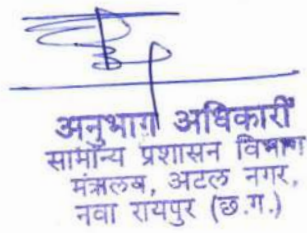 अनुभाग अधिकारी
सामान्य प्रशासन विभाग
मंत्रालय, अटल नगर,
नवा रायपुर (छ.ग.)